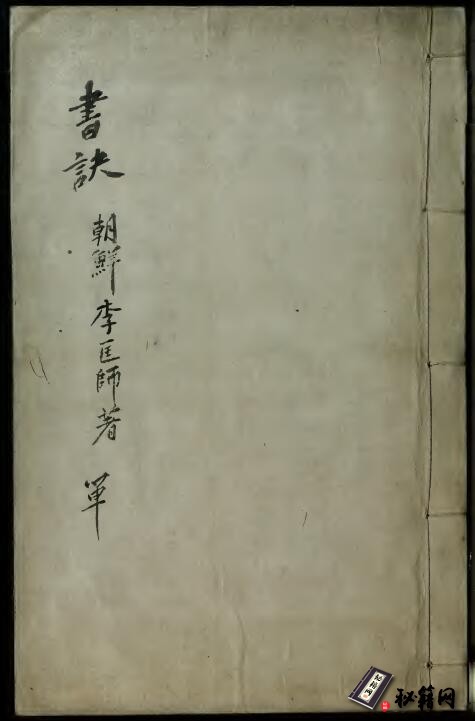 書訣
朝鮮李匡師著 單
秘籍网